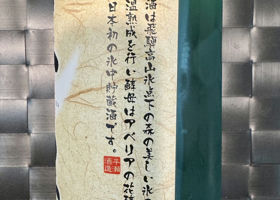 酒は飛騨高山氷点下の森の美しい氷の
温熟成を行い酵母はアベリアの花酵
日本初の氷中貯蔵酒です。
平瀬酒造